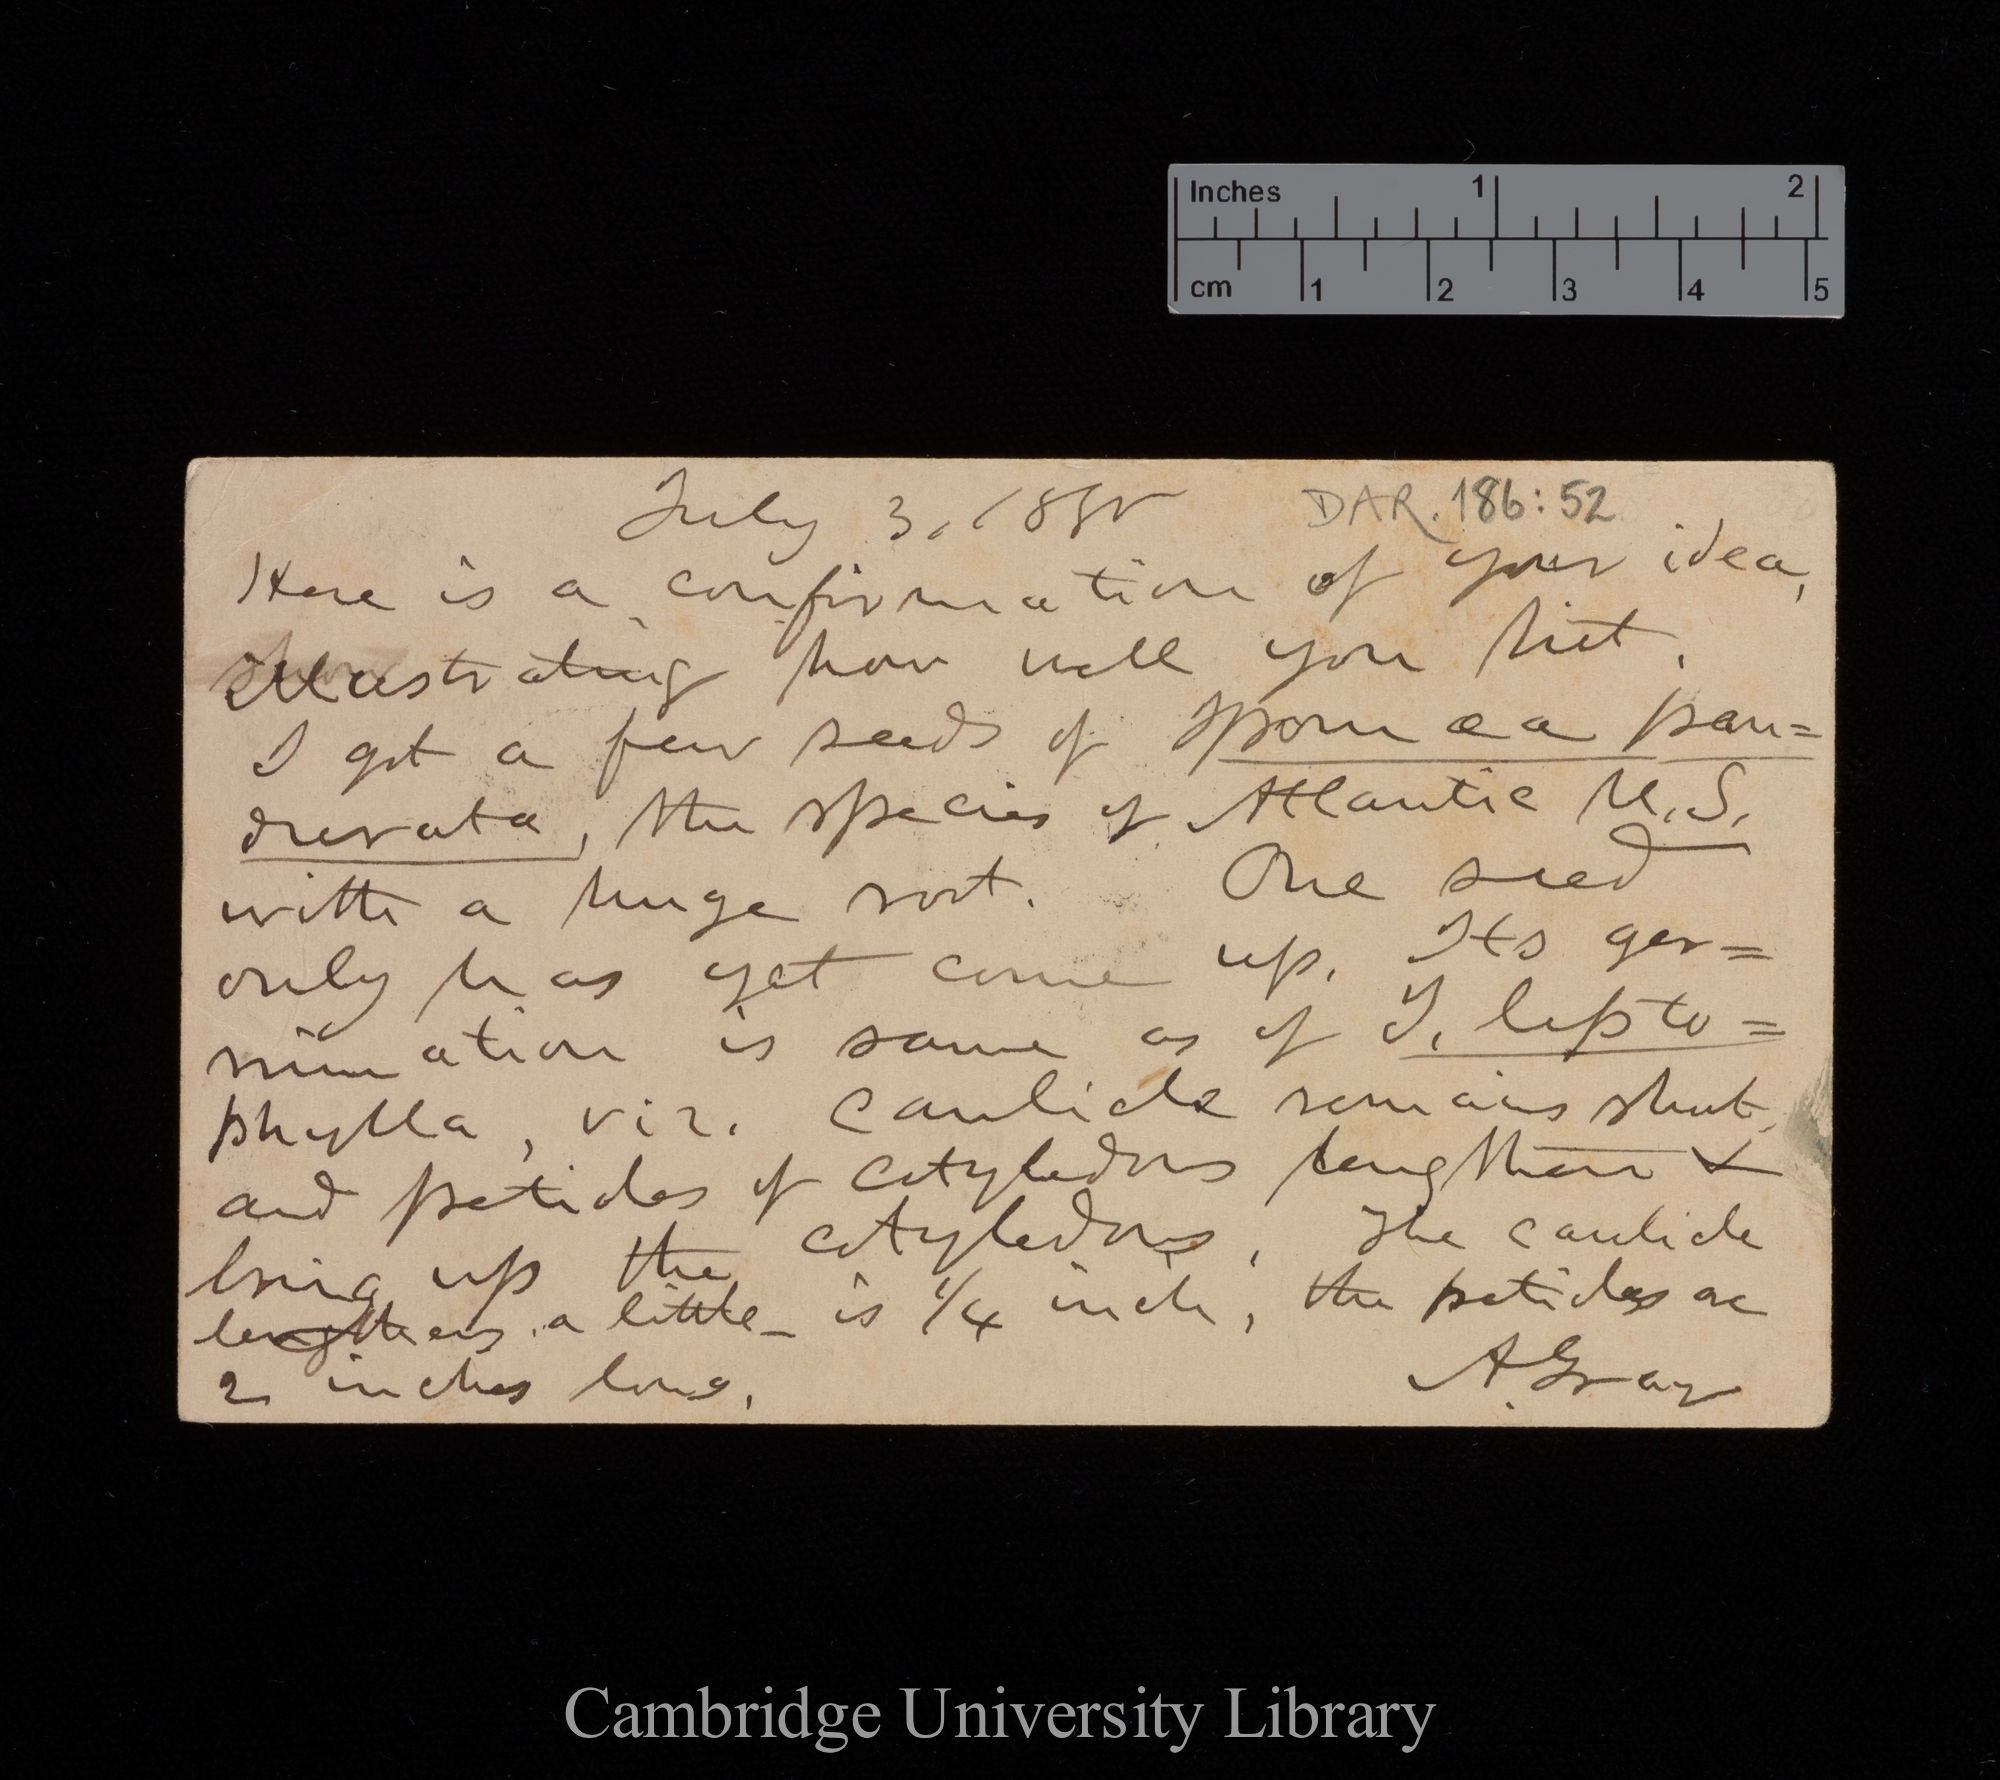 Inches 1 2
cm 1 2 3 4 5
July 3, 1880
DAR. 186:52
Here is a confirmation of your idea,
illustrating how well you hit.
I got a few seeds of Ipomœa pan=
durata, the species of Atlantic U.S.
with a huge root. One seed
only has yet come up. Its ger=
mination is same as of I. lepto=
phylla, viz. caulicle remains short,
and petioles of cotyledons lengthen &
bring up the cotyledons, The caulicle
lengthens a little – is 1/4 inch, the petioles are
2 inches long.
A. Gray
Cambridge University Library